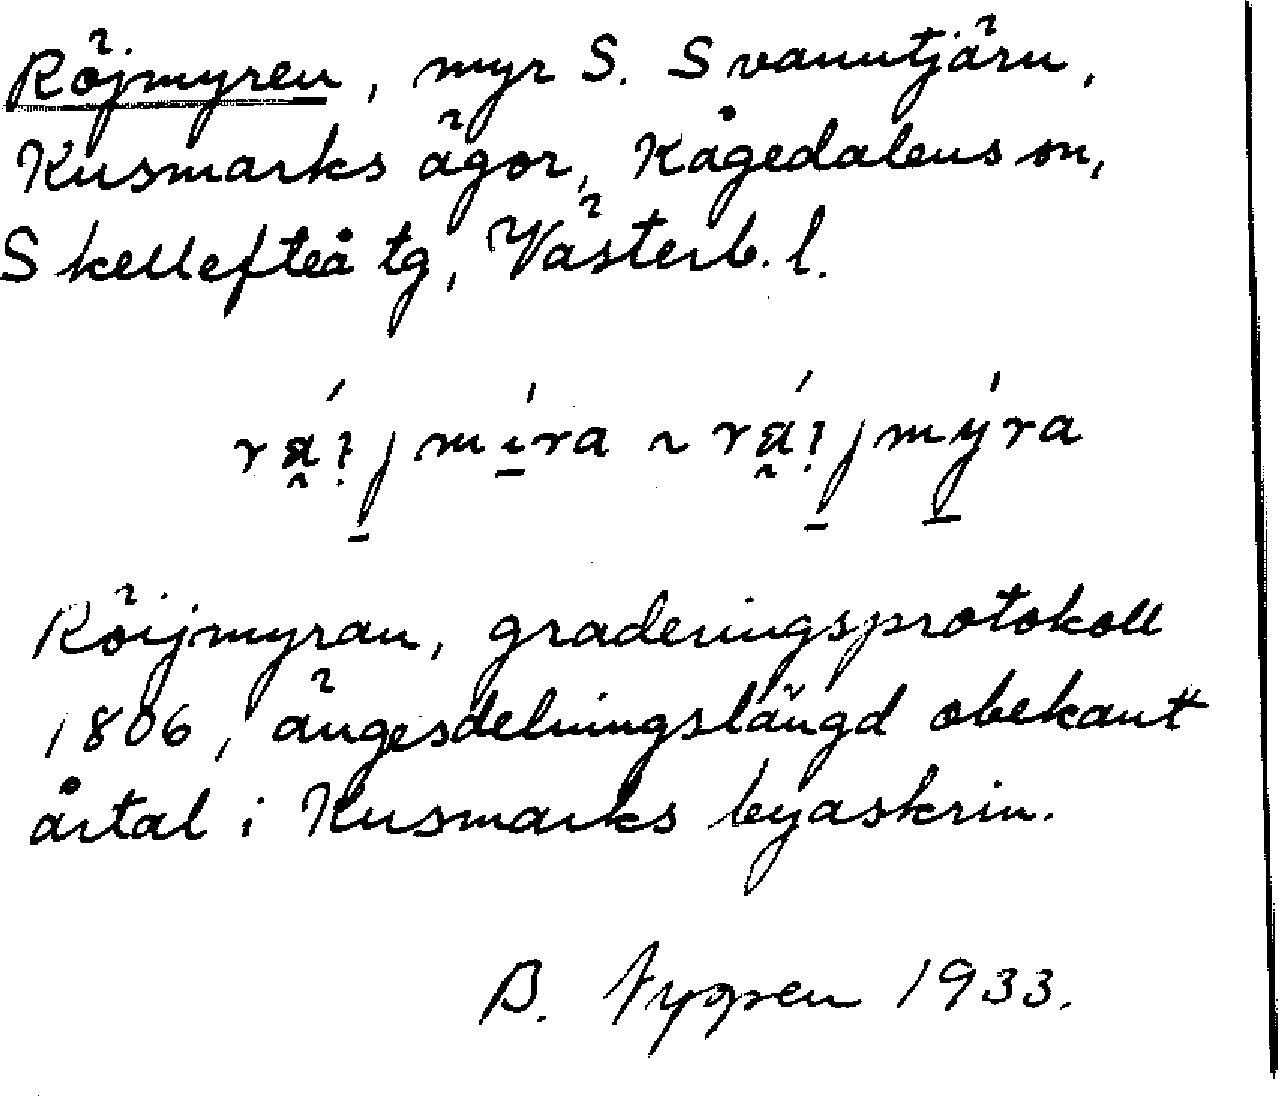 Röjmyren, myr S. Svanntjärn,
Kusmarks ägor, Kågedalens sn,
Skellefteå tg, Västerb. l.
rä́ijmíra ~ rä́ijmýra
Röijmyran, graderingsprotokoll
1806, ängesdelningslängd obekant
årtal i Kusmarks byaskrin.
B. Nygren 1933.